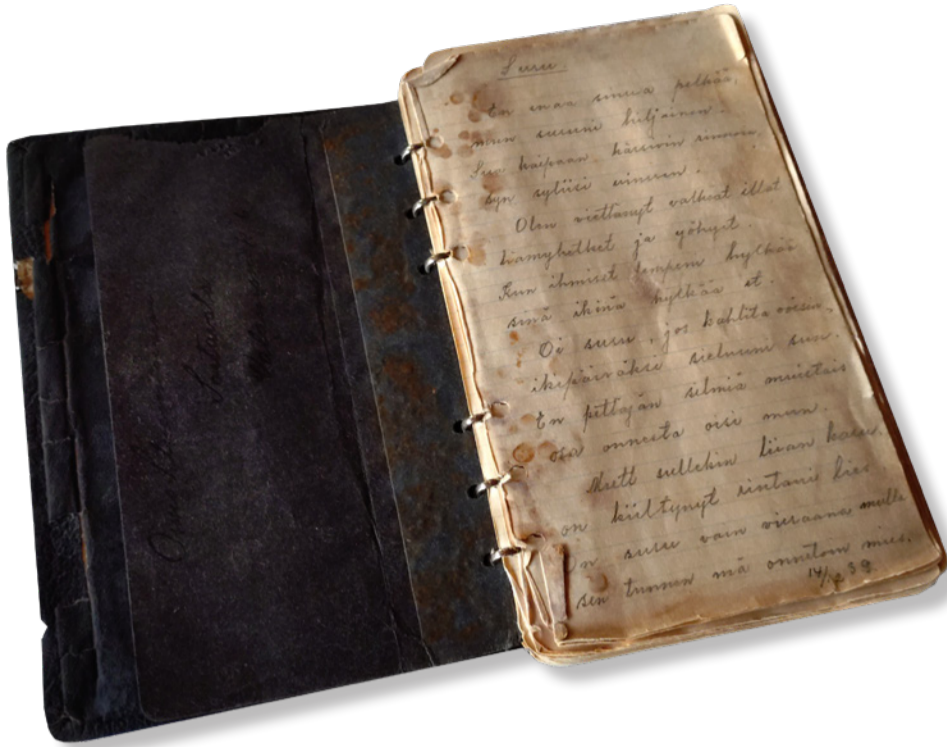 Suru.
En enää sinua pelkää,
mun suruni hiljainen.
Sua kaipaan
syn syliisi
Olen viettänyt valkeat illat
hämyhetket ja yöhyet.
Kun ihmiset hylkää
sinä ikinä hylkää et.
Oi suru, jos kahlita voisin,
ikipäiväksi sieluuni sun.
En pettäjän silmiä muistais
osa onnesta oisi mun.
Mutt sullekin liian
on kiiltynyt rintani lies
On suru vain vieraana mulle
sen tunnen mä onnetoin mies.
39